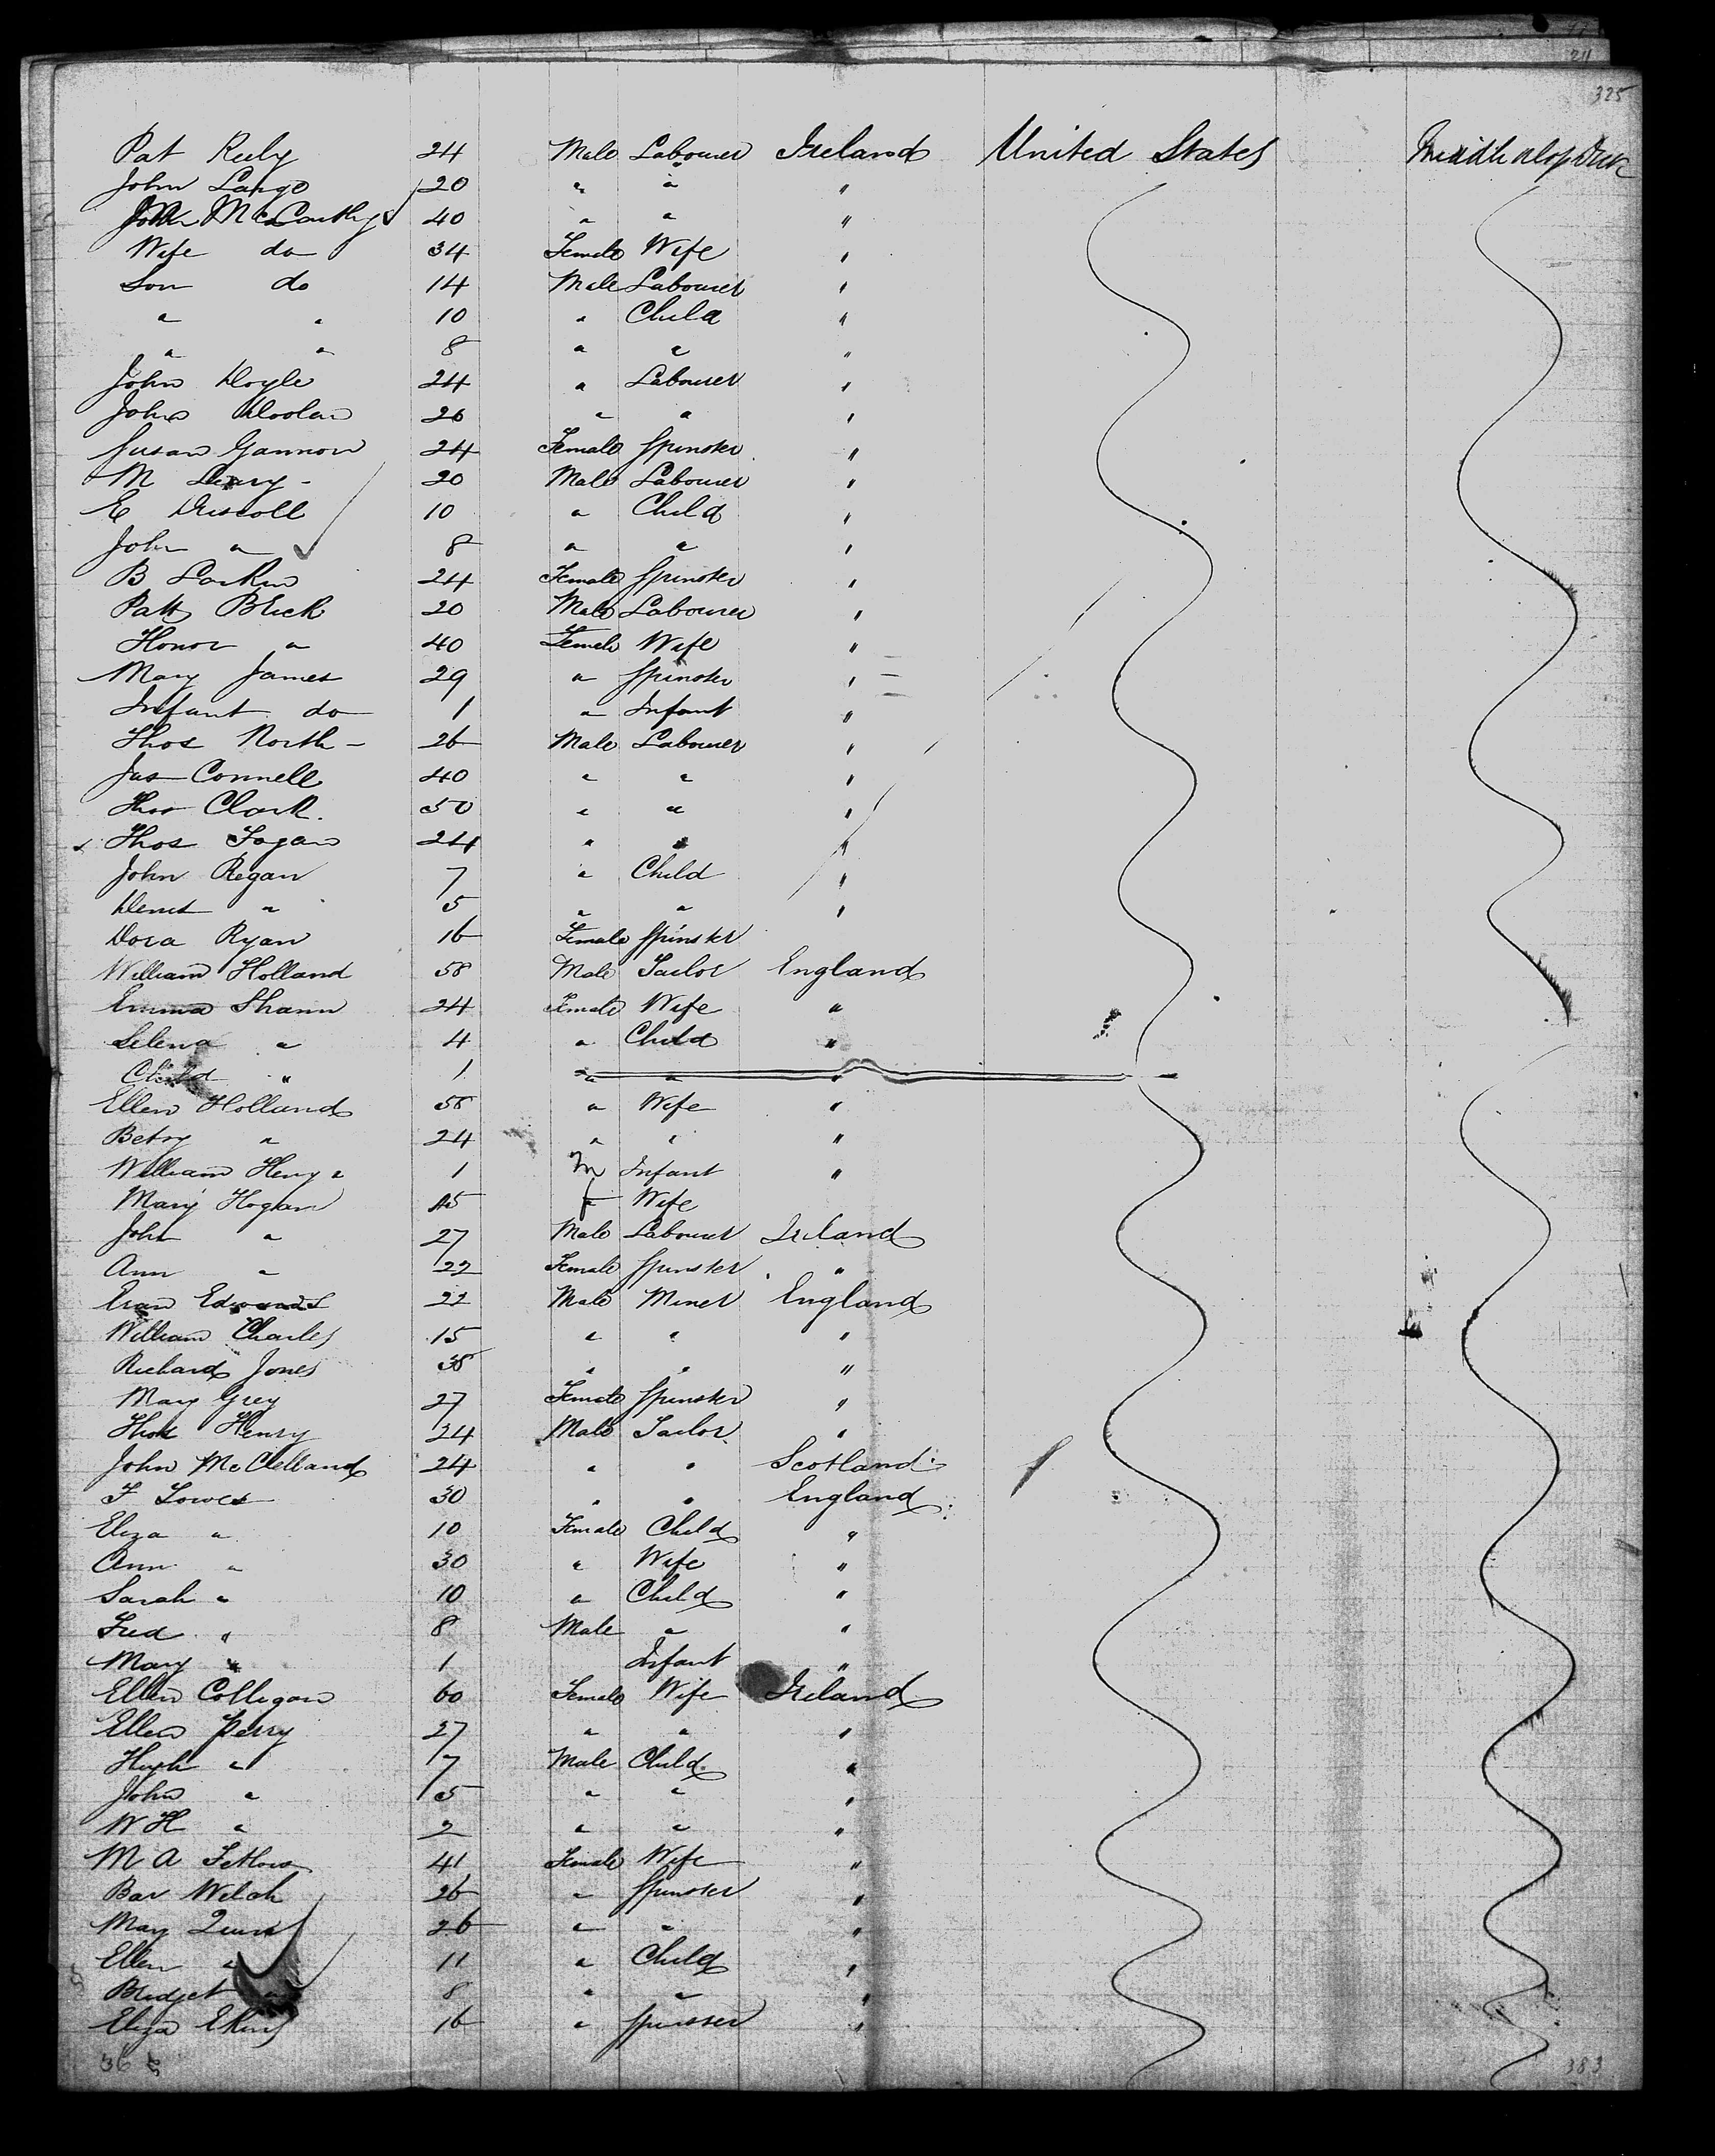 325
Pat Reely 24 Male Labourer Ireland United States Middle alof Deck
John Largo 20 " " "
John McCarthy 40 " " "
Wife do 34 Female Wife "
Son do 14 Male Labourer "
" " 10 " Child "
" " 8 " " "
John Doyle 24 " Labourer "
John Doolan 26 " " "
Susan Gannon 24 Female Spinster "
M Leary - 20 Male Labourer "
E Driscoll 10 " Child "
John " 8 " " "
B Larkin 24 Female Spinster "
Patk Blick 20 Male Labourer "
Honor " 40 Female Wife "
Mary James 29 " Spinster "
Infant do 1 " Infant "
Thos North - 26 Male Labourer "
Jas Connell 40 " " "
Thos Clark. 50 " " "
Thos Fagan 24 " " "
John Regan 7 " Child "
Denis " 5 " " "
Dora Ryan 16 Female Spinster
William Holland 58 Male Tailor England
Emma Shann 24 Female Wife "
Selena " 4 " Child "
Child " 1 " " "
Ellen Holland 58 " Wife "
Betsy " 24 " " "
William Henry " 1 m Infant "
Mary Hogan 45 f Wife
John " 27 Male Labourer Ireland
Ann " 22 Female Spinster "
Evan Edwards 22 Male Miner England
William Charles 15 " " "
Richard Jones 38 " " "
Mary Grey 27 Female Spinster "
Thos Henry 24 Male Tailor "
John McClelland 24 " " Scotland
F Lowes 30 " " England
Eliza " 10 Female Child "
Ann " 30 " Wife "
Sarah " 10 " Child "
Fred " 8 Male " "
Mary " 1 Infant "
Ellen Colligan 60 Female Wife Ireland
Ellen Perry 27 " " "
Hugh " 7 Male Child "
John " 5 " " "
W H " 2 " " "
M A 41 Female Wife "
Bar Welch 26 " Spinster "
Mary Quinn 26 " " "
Ellen " 11 " Child "
Bridget " 8 " " "
Eliza Ekins 16 " Spinster "
36 383